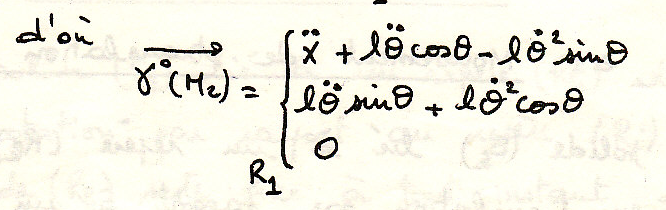 d'où
γ⁰(M₂) = { ẍ + lθ̈ cosθ - lθ̇² sinθ
lθ̈ sinθ + lθ̇² cosθ
0
R₁